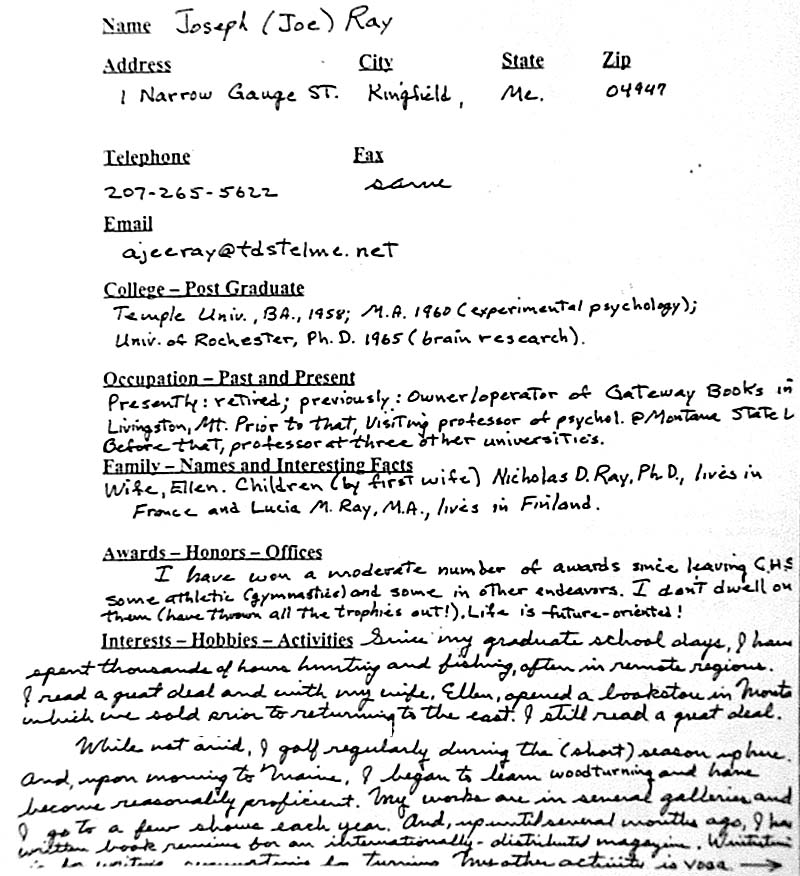 Name Joseph (Joe) Ray
Address City State Zip
1 Narrow Gauge ST. Kingfield, Me. 04947
Telephone Fax
207-265-5622 same
Email
ajeeray@tdstelme.net
College – Post Graduate
Temple Univ., BA., 1958; M.A. 1960 (experimental psychology);
Univ. of Rochester, Ph.D. 1965 (brain research).
Occupation – Past and Present
Presently: retired; previously: Owner/operator of Gateway Books in
Livingston, Mt. Prior to that, Visiting professor of psychol. @ Montana State
Before that, professor at three other universities.
Family – Names and Interesting Facts
Wife, Ellen. Children (by first wife) Nicholas D. Ray, Ph.D., lives in
France and Lucia M. Ray, M.A., lives in Finland.
Awards – Honors – Offices
I have won a moderate number of awards since leaving C.H.S
some athletic (gymnastics) and some in other endeavors. I don't dwell on
them (have thrown all the trophies out!). Life is future-oriented!
Interests – Hobbies – Activities Since my graduate school days, I have
spent thousands of hours hunting and fishing, often in remote regions.
I read a great deal and with my wife, Ellen, opened a bookstore in Monta
which we sold prior to returning to the east. I still read a great deal.
While not avid, I golf regularly during the (short) season up here.
And, upon moving to Maine, I began to learn woodturning and have
become reasonably proficient. My works are in several galleries and
I go to a few shows each year. And, up until several months ago, I ha
written book reviews for an internationally-distributed magazine.
turning other activity is